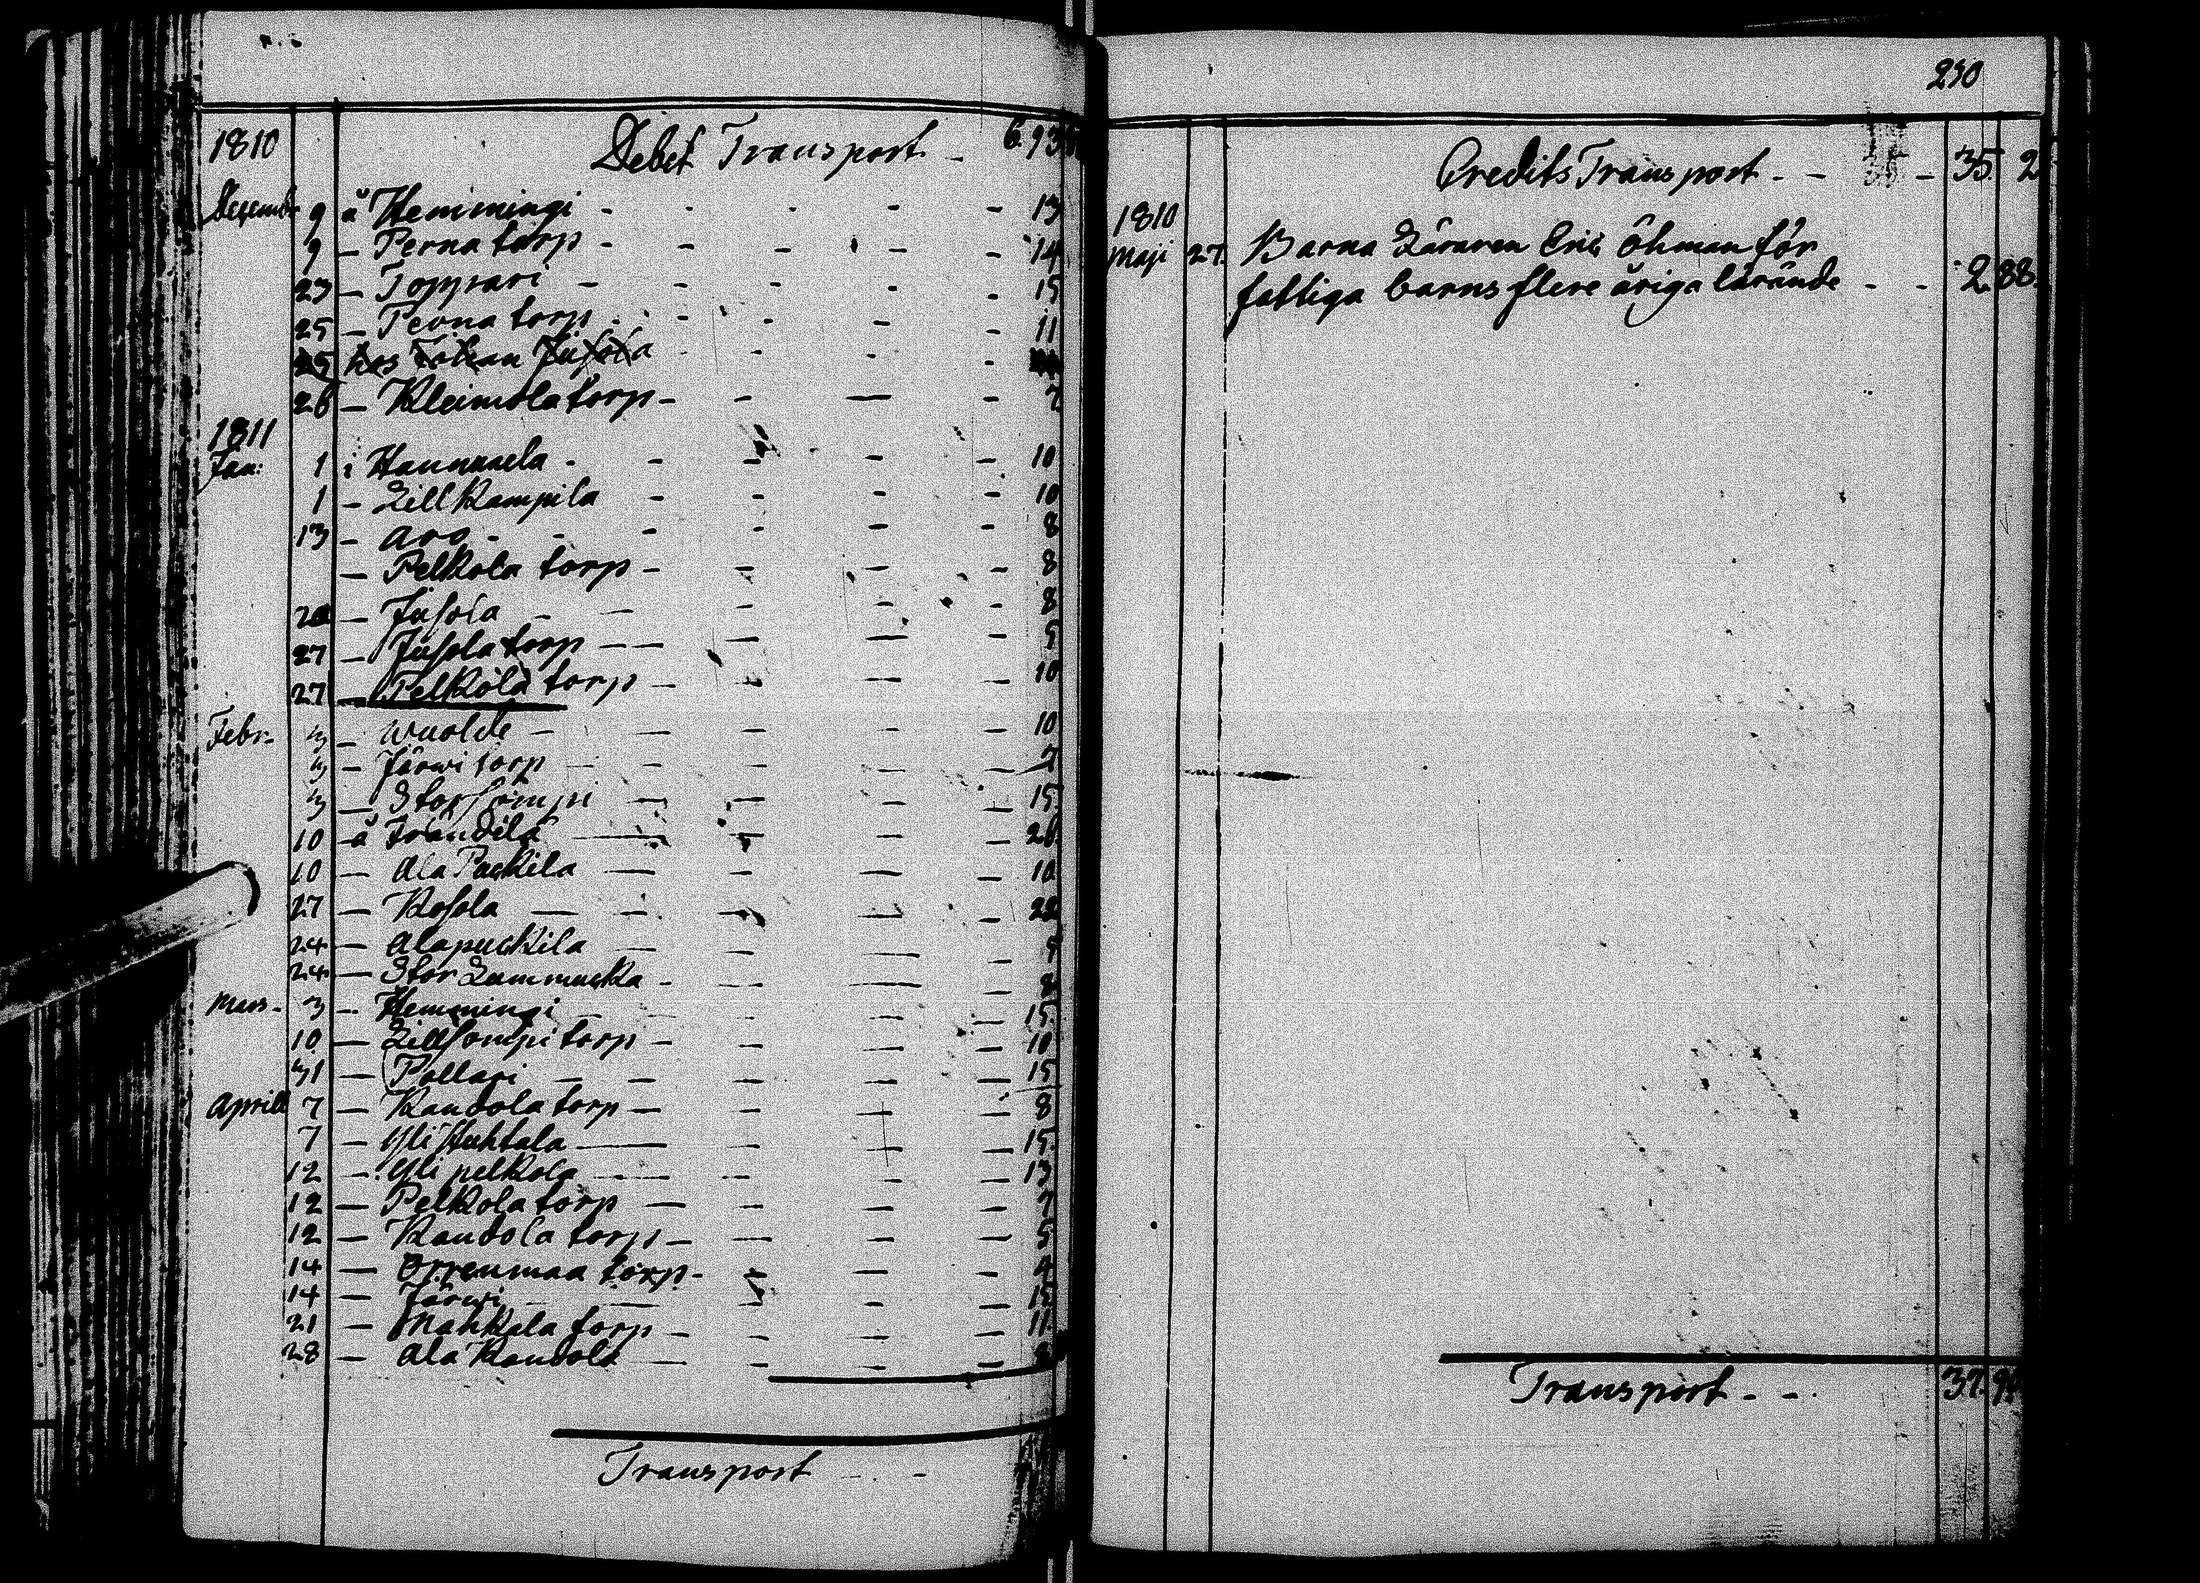 1810 Debet Transport - 6. 93
Decemb 9 å Hemmingi - - - - - 13
9 - Perna torp - - - - - 14
23 - Toppari - - - - - 15
25 - Perna torp - - - - 11
25 hos Johan Jusola - - -
26 - Kleimola torp - - - - 7
1811
Jan: 1 i Hannuxela - - - - - 10
1 - Lill Kampila - - - - 10
13 - Aro - - - - - 8
- Pelkola torp - - - - 8
20 - Jusola - - - - - 8
27 - Jusola torp - - - - - 5
27 - Pelkola torp - - - - 10
Febr. 3 - Wuolde - - - - - 10
3 - Järwi torp - - - - - 7
3 - Storsömpi - - - - 15
10 å Frändilä - - - - 26
10 - Ala Packila - - - - 10
27 - Kosola - - - - - 22
24 - Alapuckila - - - - 5
24 - Stor Lummucka - - - - 8
Mars - 3 - Hemmingi - - - - 15.
10 - Lillsompi torp - - - - 10
31 - Pollari - - - - - 15
Aprill 7 - Raudola torp - - - - 8
7 - Yli Huhtala - - - 15.
12 - Yli pelkola - - - - 13
12 - Pelkola torp - - - - 7
12 - Raudola torp - - - - 5
14 - Orrenmaa torp - - - - 4
14 - Järwi - - - - - 15
21 - Mahkala torp - - - - 11.
28 - Ala Raudola - - - -
Transport - -
230
Credits Transport - - - 35. 2
1810
Maji 27. Barna Läraren Eric Öhman för
fattiga barns flere åriga lärande - - 2. 88.
Transport - - 37. 90